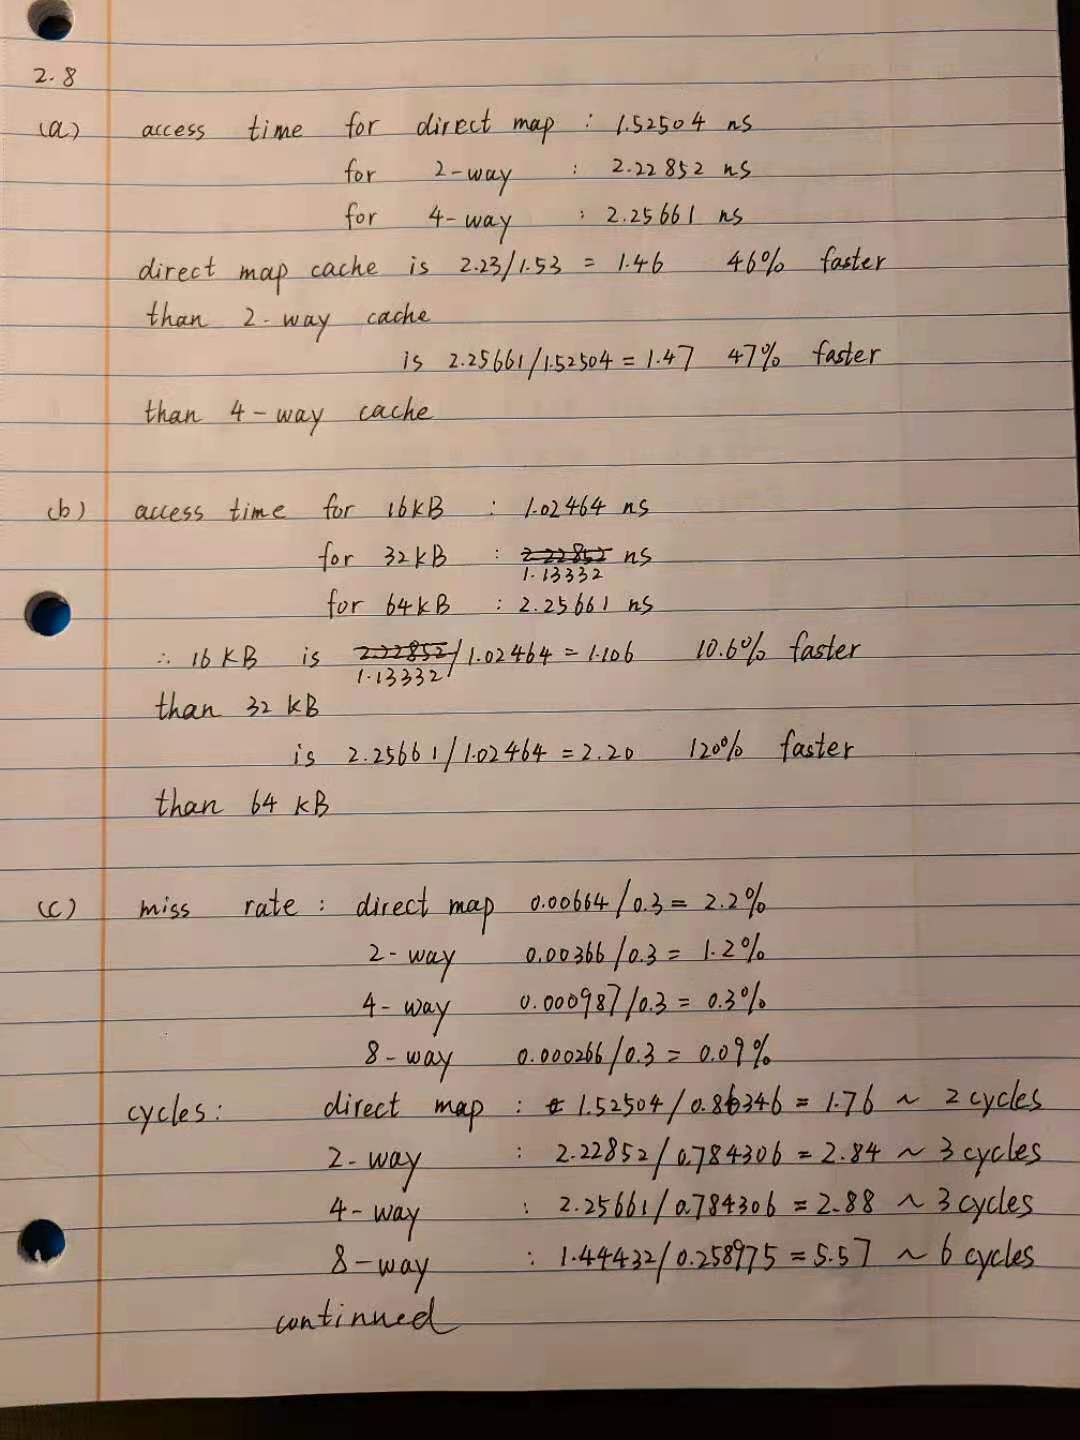 2.8
(a) access time for direct map : 1.52504 ns
for 2-way : 2.22852 ns
for 4-way : 2.25661 ns
direct map cache is 2.23/1.53 = 1.46 46% faster
than 2-way cache
is 2.25661/1.52504 = 1.47 47% faster
than 4-way cache
(b) access time for 16kB : 1.02464 ns
for 32kB : 2.22852 ns
1.13332
for 64kB : 2.25661 ns
∴ 16 KB is 2.22852/1.02464 = 1.106 10.6% faster
1.13332
than 32 KB
is 2.25661/1.02464 = 2.20 120% faster
than 64 KB
(c) miss rate : direct map 0.00664/0.3 = 2.2%
2-way 0.00366/0.3 = 1.2%
4-way 0.000987/0.3 = 0.3%
8-way 0.000266/0.3 = 0.09%
cycles : direct map : 1.52504/0.86346 = 1.76 ~ 2 cycles
2-way : 2.22852/0.784306 = 2.84 ~ 3 cycles
4-way : 2.25661/0.784306 = 2.88 ~ 3 cycles
8-way : 1.44432/0.258975 = 5.57 ~ 6 cycles
continued